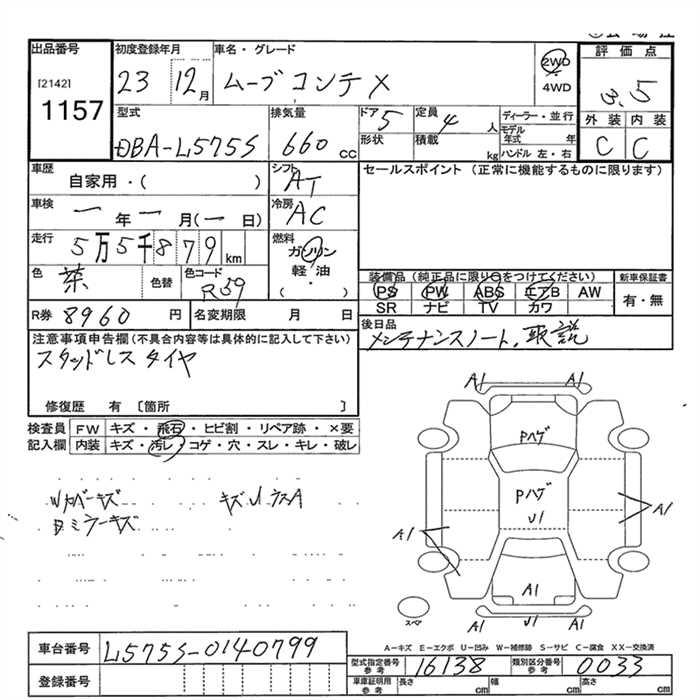 出品番号
[2142]
1157
初度登録年月
23 12月
車名・グレード
ムーブ コンテ X
2WD
4WD
評価点
3.5
外装 内装
C C
型式
DBA-L575S
排気量
660 cc
ドア 5
定員 4 人
形状
積載 kg
ディーラー・並行
モデル年式 年
ハンドル 左・右
車歴
自家用・( )
シフト
AT
セールスポイント (正常に機能するものに限ります)
車検
一年一月(一日)
冷房
AC
走行
5万5千879km
燃料
ガソリン
軽・油
( ・ )
色
茶
色替
色コード
R59
装備品 (純正品に限り○をつけてください)
PS PW ABS エアB AW
SR ナビ TV カワ
新車保証書
有・無
R券 8960 円
名変期限 月 日
後日品
メンテナンスノート、取説
注意事項申告欄 (不具合内容等は具体的に記入して下さい)
スタッドレスタイヤ
修復歴 有 〔箇所 〕
検査員記入欄
FW キズ・飛石・ヒビ割・リペア跡・×要
内装 キズ・汚レ・コゲ・穴・スレ・キレ・破レ
Wカバーキズ
ミラーキズ
A1 A1
Pハゲ
Pハゲ
U1
A1
A1
A1
A1 A1
スペア
車台番号 L575S-0140799
登録番号
A-キズ E-エクボ U-凹み W-補修跡 S-サビ C-腐食 XX-交換済
型式指定番号 参考 16138
類別区分番号 参考 0033
車庫証明用 参考 長さ cm 幅 cm 高さ cm